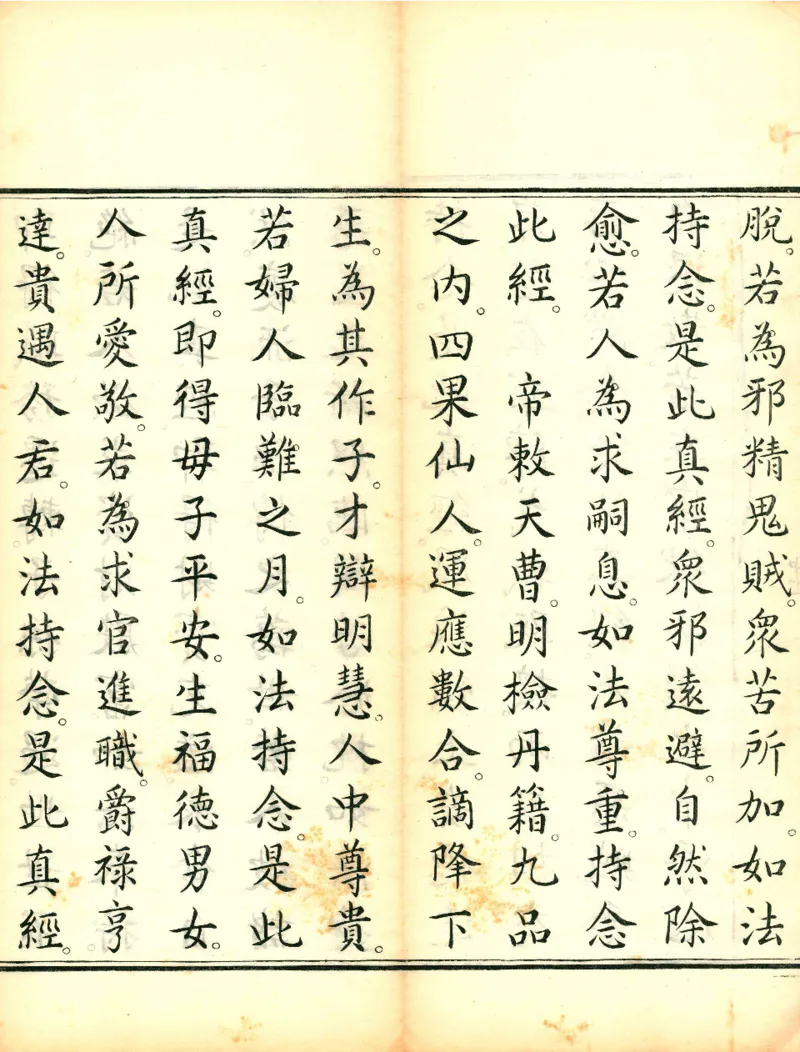 脫。若為邪精鬼賊。眾苦所加。如法
持念。是此真經。眾邪遠避。自然除
愈。若人為求嗣息。如法尊重。持念
此經。　帝敕天曹。明檢丹籍。九品
之內。四果仙人。運應數合。謫降下
生。為其作子。才辯明慧。人中尊貴。
若婦人臨難之月。如法持念。是此
真經。即得母子平安。生福德男女。
人所愛敬。若為求官進職。爵祿亨
達。貴遇人君。如法持念。是此真經。